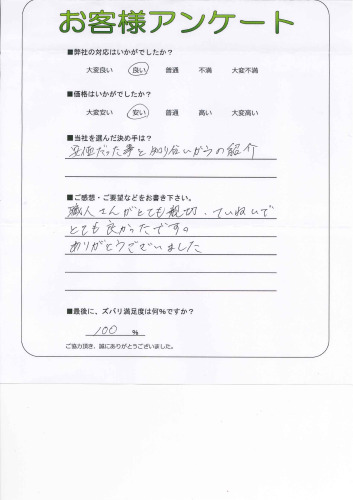 お客様アンケート
■弊社の対応はいかがでしたか?
大変良い 良い 普通 不満 大変不満
■価格はいかがでしたか?
大変安い 安い 普通 高い 大変高い
■当社を選んだ決め手は?
安価だった事と知り合いからの紹介
■ご感想・ご要望などをお書き下さい。
職人さんがとても親切、ていねいで
とても良かったです。
ありがとうございました
■最後に、ズバリ満足度は何%ですか?
100 %
ご協力頂き、誠にありがとうございました。